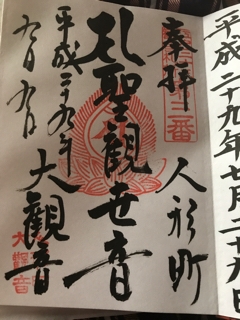 平成二十九年七月二十九日
奉拝 人形町
三番
聖觀世音
大觀音
大觀音
平成二十九年
九月九日